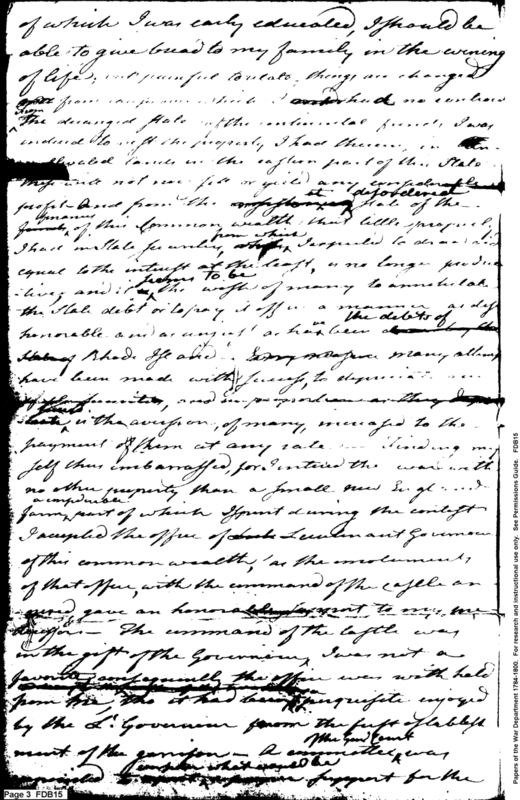 of which I was early educated, I should be
able to give bread to my family in the evening
of life; but painful to relate, things are changed
from which I had no controul
from The deranged state of the continental funds, I was
induced to vest the property I had therein, in
lands in the eastern part of this State
these will not now sell or yield any considerable
profit And from the disordered state of the
finances of this Common wealth, that little property
I had in State securities, from which I expected to draw
equal to the interest at the least, is no longer produc
tive, and it seems to be the wish of many to annihilate
the State debt or to pay it off in a manner as dis
honorable and as unjust as has been the debts of
Rhode Island. many attempts
have been made with success, to depreciate
and in proportion as they
funds is the aversion, of many, increased to the
payment of them at any rate Finding my
self thus embarrassed, for I entered the war with
no other property than a small New England
farm, a considerable part of which I spent during the contest
I accepted the office of Lieutenant Governour
of this common wealth, as the emoluments
of that office, with the command of the castle an
nexed gave an honorable support to my pre
decessors — The command of the castle was
in the gift of the Governour, I was not a
favorite consequently the office was with held
from me, tho it had been a perquisite enjoyed
by the Lt Governour from the first establish
ment of the garrison — A committee of the Genl Court was
appointed to what would be support for the
Page 3 FDB15
Papers of the War Department 1784-1800. For research and instructional use only. See Permissions Guide. FDB15